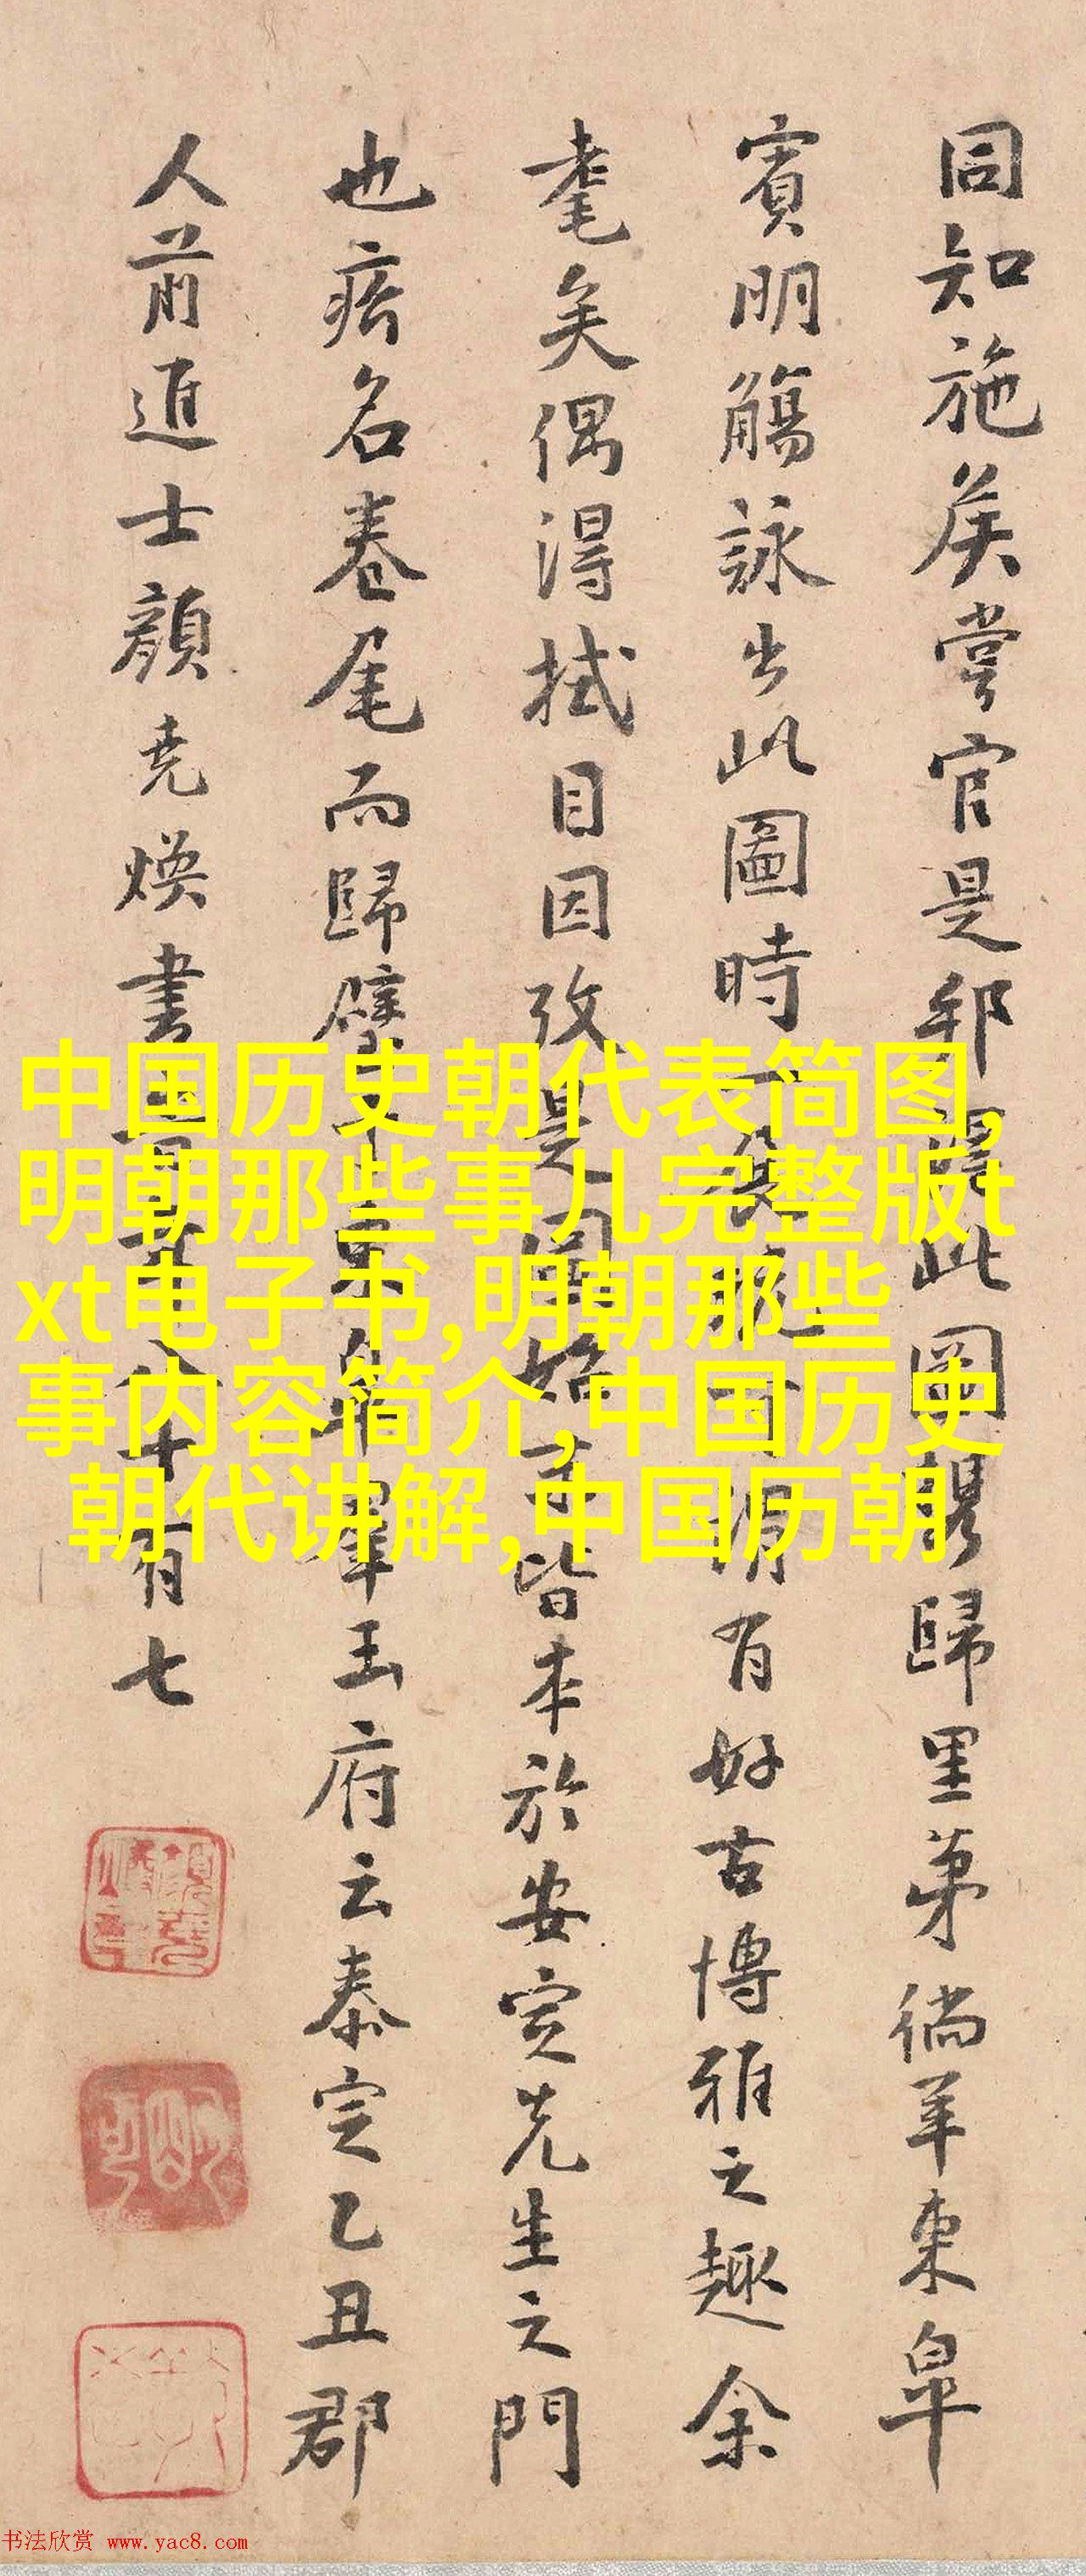 同知施侯嘗官是邦得此圖歸里第徜羊東皐
賓明觴詠出此圖時一展玩可謂有好古博雅之趣余
耄矣偶得拭目因攷是圖始末皆本於安定先生之門
也瘩名卷尾而歸璧
玉府云泰定乙丑郡
人前進士顔堯煥書
有七
中国历史朝代表简图,
明朝那些事儿完整版t
xt电子书,明朝那些
事内容简介,中国历史
朝代讲解,中国历朝
书法欣赏 www.yac8.com